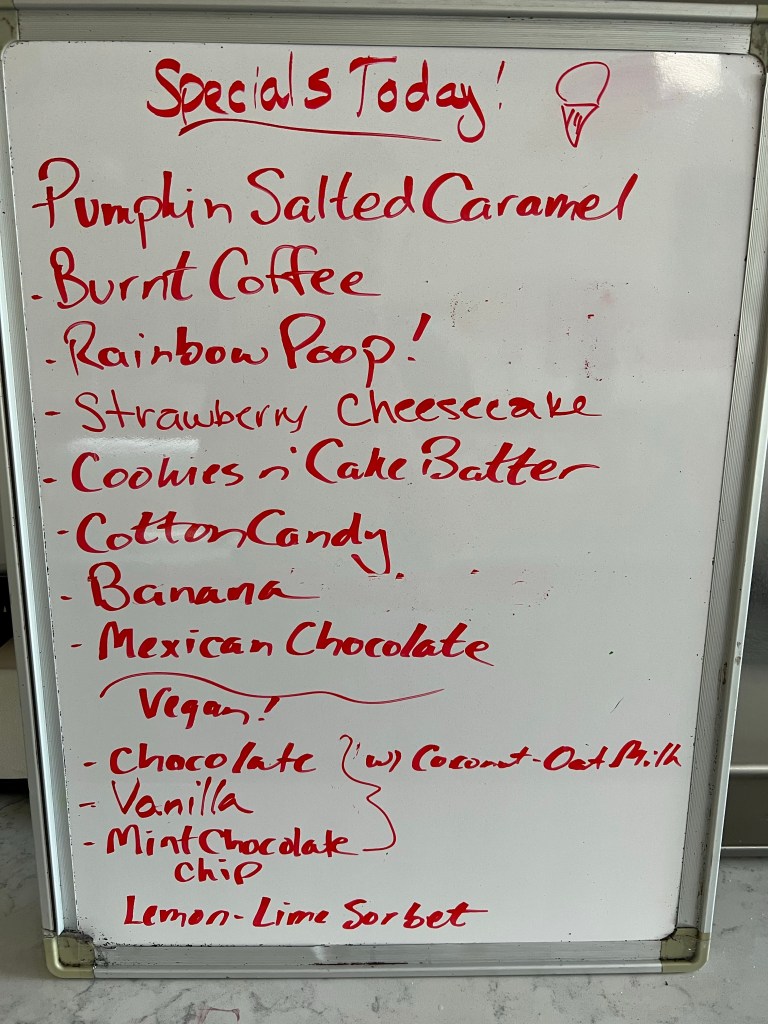 Specials Today!
Pumpkin Salted Caramel
- Burnt Coffee
- Rainbow Poop!
- Strawberry Cheesecake
- Cookies n' Cake Batter
- Cotton Candy
- Banana
- Mexican Chocolate
Vegan!
- Chocolate } w/ Coconut-Oat Milk
- Vanilla
- Mint Chocolate
chip
Lemon-Lime Sorbet